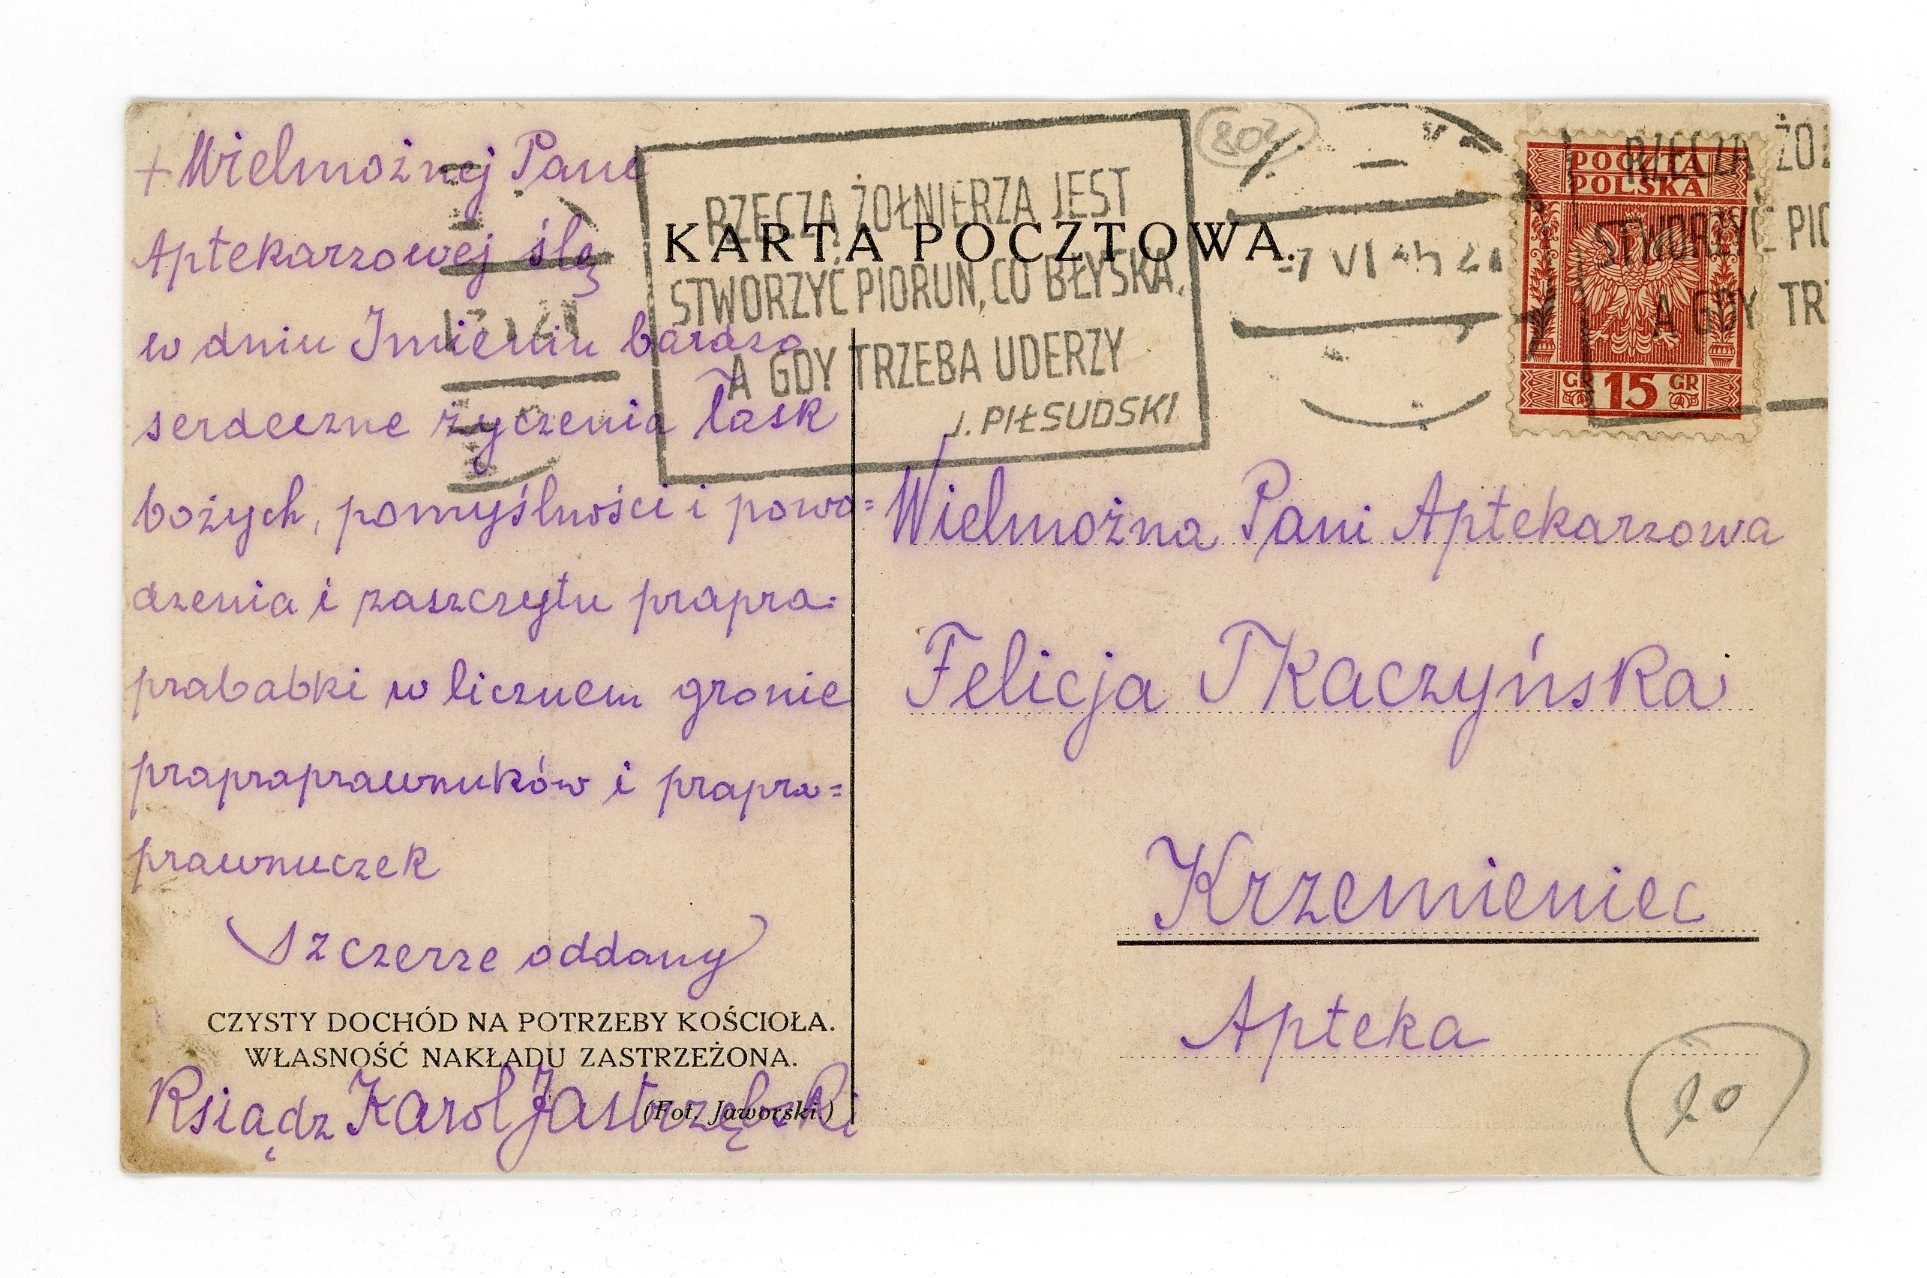 + Wielmożnej Pani
Aptekarzowej ślę
w dniu Imienin bardzo
serdeczne życzenia łask
bożych, pomyślności i powo=
dzenia i zaszczytu prapra-
prababki w licznem gronie
prapraprawnuków i prapra=
prawnuczek
Szczerze oddany
CZYSTY DOCHÓD NA POTRZEBY KOŚCIOŁA.
WŁASNOŚĆ NAKŁADU ZASTRZEŻONA.
(Fot. Jaworski.)
Ksiądz Karol Jastrzębski
KARTA POCZTOWA.
RZECZĄ ŻOŁNIERZA JEST
STWORZYĆ PIORUN, CO BŁYSKA,
A GDY TRZEBA UDERZY
J. PIŁSUDSKI
802
7 VI
POCZTA
POLSKA
GR 15 GR
RZECZĄ ŻOŁ
STWORZYĆ PIO
A GDY TRZ
Wielmożna Pani Aptekarzowa
Felicja Tkaczyńska
Krzemieniec
Apteka
20